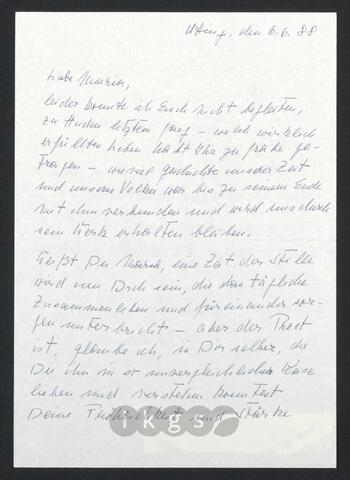 Utting, den 6.6.88
Liebe Maria,
leider konnte ich Euch nicht begleiten,
zu Euren letztem Gang – welch wirklich
erfülltes Leben habt Ihr zu Grabe ge-
tragen – wieviel Geschichte unserer Zeit
und unseres Volkes war bis zu seinem Ende
mit ihm verbunden und wird uns durch
sein Werk erhalten bleiben.
Du Maria, eine Zeit der Stille
wird um Dich sein, die das tägliche
Zusammenleben und füreinander sor-
gen unterbricht – aber der Trost
ist, glaube ich, in Dir selber, die
Du ihn in so unvergleichlicher Weise
lieben und verstehen konntest
Deine und Stärke
ikgs